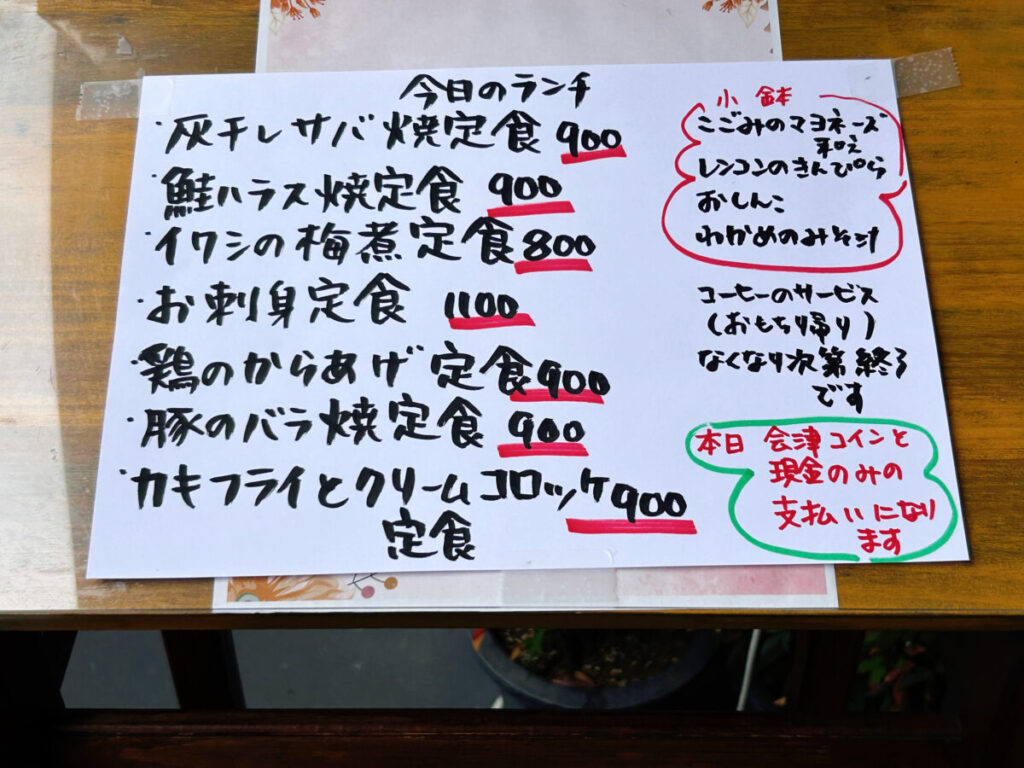 今日のランチ
・灰干しサバ焼定食 900
・鮭ハラス焼定食 900
・イワシの梅煮定食 800
・お刺身定食 1100
・鶏のからあげ定食 900
・豚のバラ焼定食 900
・カキフライとクリームコロッケ 900
定食
小鉢
こごみのマヨネーズ
和え
レンコンのきんぴら
おしんこ
わかめのみそ汁
コーヒーのサービス
(おもち帰り)
なくなり次第終了
です
本日 会津コインと
現金のみの
支払いになり
ます